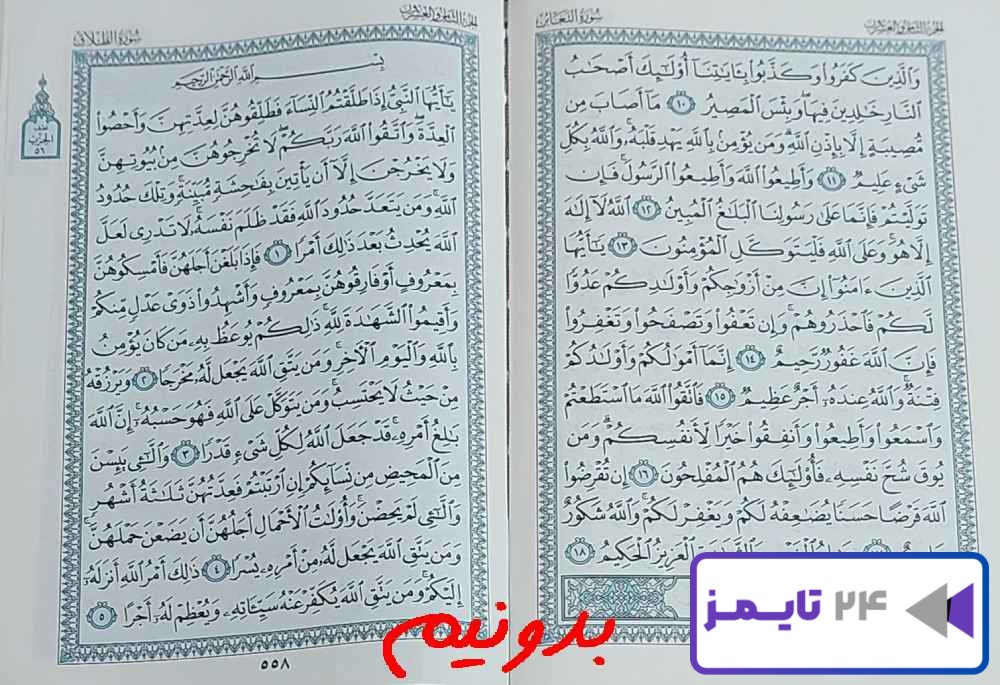 الجزء الثامن والعشرون
سورة التغابن
وَالَّذِينَ كَفَرُوا وَكَذَّبُوا بِـَٔايَـٰتِنَآ أُو۟لَـٰٓئِكَ أَصْحَـٰبُ
النَّارِ خَـٰلِدِينَ فِيهَا وَبِئْسَ الْمَصِيرُ ١٠ مَآ أَصَابَ مِن
مُّصِيبَةٍ إِلَّا بِإِذْنِ اللَّهِ وَمَن يُؤْمِنۢ بِاللَّهِ يَهْدِ قَلْبَهُۥ وَاللَّهُ بِكُلِّ
شَىْءٍ عَلِيمٌ ١١ وَأَطِيعُوا اللَّهَ وَأَطِيعُوا الرَّسُولَ فَإِن
تَوَلَّيْتُمْ فَإِنَّمَا عَلَىٰ رَسُولِنَا الْبَلَـٰغُ الْمُبِينُ ١٢ اللَّهُ لَآ إِلَـٰهَ
إِلَّا هُوَ وَعَلَى اللَّهِ فَلْيَتَوَكَّلِ الْمُؤْمِنُونَ ١٣ يَـٰٓأَيُّهَا
الَّذِينَ ءَامَنُوٓا إِنَّ مِنْ أَزْوَٰجِكُمْ وَأَوْلَـٰدِكُمْ عَدُوًّا
لَّكُمْ فَاحْذَرُوهُمْ وَإِن تَعْفُوا وَتَصْفَحُوا وَتَغْفِرُوا
فَإِنَّ اللَّهَ غَفُورٌ رَّحِيمٌ ١٤ إِنَّمَآ أَمْوَٰلُكُمْ وَأَوْلَـٰدُكُمْ
فِتْنَةٌ وَاللَّهُ عِندَهُۥٓ أَجْرٌ عَظِيمٌ ١٥ فَاتَّقُوا اللَّهَ مَا اسْتَطَعْتُمْ
وَاسْمَعُوا وَأَطِيعُوا وَأَنفِقُوا خَيْرًا لِّأَنفُسِكُمْ وَمَن
يُوقَ شُحَّ نَفْسِهِۦ فَأُو۟لَـٰٓئِكَ هُمُ الْمُفْلِحُونَ ١٦ إِن تُقْرِضُوا
اللَّهَ قَرْضًا حَسَنًا يُضَـٰعِفْهُ لَكُمْ وَيَغْفِرْ لَكُمْ وَاللَّهُ شَكُورٌ
الْعَزِيزُ الْحَكِيمُ ١٨
الجزء الثامن والعشرون
سورة الطلاق
بِسْمِ اللَّهِ الرَّحْمَـٰنِ الرَّحِيمِ
يَـٰٓأَيُّهَا النَّبِىُّ إِذَا طَلَّقْتُمُ النِّسَآءَ فَطَلِّقُوهُنَّ لِعِدَّتِهِنَّ وَأَحْصُوا
الْعِدَّةَ وَاتَّقُوا اللَّهَ رَبَّكُمْ لَا تُخْرِجُوهُنَّ مِنۢ بُيُوتِهِنَّ
وَلَا يَخْرُجْنَ إِلَّآ أَن يَأْتِينَ بِفَـٰحِشَةٍ مُّبَيِّنَةٍ وَتِلْكَ حُدُودُ
اللَّهِ وَمَن يَتَعَدَّ حُدُودَ اللَّهِ فَقَدْ ظَلَمَ نَفْسَهُۥ لَا تَدْرِى لَعَلَّ
اللَّهَ يُحْدِثُ بَعْدَ ذَٰلِكَ أَمْرًا ١ فَإِذَا بَلَغْنَ أَجَلَهُنَّ فَأَمْسِكُوهُنَّ
بِمَعْرُوفٍ أَوْ فَارِقُوهُنَّ بِمَعْرُوفٍ وَأَشْهِدُوا ذَوَىْ عَدْلٍ مِّنكُمْ
وَأَقِيمُوا الشَّهَـٰدَةَ لِلَّهِ ذَٰلِكُمْ يُوعَظُ بِهِۦ مَن كَانَ يُؤْمِنُ
بِاللَّهِ وَالْيَوْمِ الْـَٔاخِرِ وَمَن يَتَّقِ اللَّهَ يَجْعَل لَّهُۥ مَخْرَجًا ٢ وَيَرْزُقْهُ
مِنْ حَيْثُ لَا يَحْتَسِبُ وَمَن يَتَوَكَّلْ عَلَى اللَّهِ فَهُوَ حَسْبُهُۥٓ إِنَّ اللَّهَ
بَـٰلِغُ أَمْرِهِۦ قَدْ جَعَلَ اللَّهُ لِكُلِّ شَىْءٍ قَدْرًا ٣ وَالَّـٰٓـِٔى يَئِسْنَ
مِنَ الْمَحِيضِ مِن نِّسَآئِكُمْ إِنِ ارْتَبْتُمْ فَعِدَّتُهُنَّ ثَلَـٰثَةُ أَشْهُرٍ
وَالَّـٰٓـِٔى لَمْ يَحِضْنَ وَأُو۟لَـٰتُ الْأَحْمَالِ أَجَلُهُنَّ أَن يَضَعْنَ حَمْلَهُنَّ
وَمَن يَتَّقِ اللَّهَ يَجْعَل لَّهُۥ مِنْ أَمْرِهِۦ يُسْرًا ٤ ذَٰلِكَ أَمْرُ اللَّهِ أَنزَلَهُۥٓ
إِلَيْكُمْ وَمَن يَتَّقِ اللَّهَ يُكَفِّرْ عَنْهُ سَيِّـَٔاتِهِۦ وَيُعْظِمْ لَهُۥٓ أَجْرًا ٥
نصف
الحزب
٥٦
٥٥٨
بدونیم
۲۴ تایمز